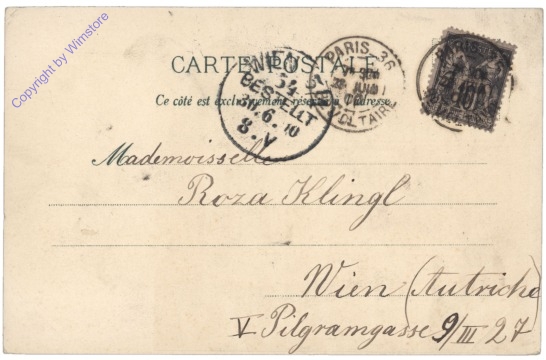 Copyright by Wimstore
CARTE POSTALE
Ce côté est exclusivement réservé à l'adresse.
WIEN
BESTELLT
30.6.00
8.V
PARIS 36
VOLTAIRE
PARIS
10
Mademoiselle
Roza Klingl
Wien (Autriche)
V Pilgramgasse 9/III 27